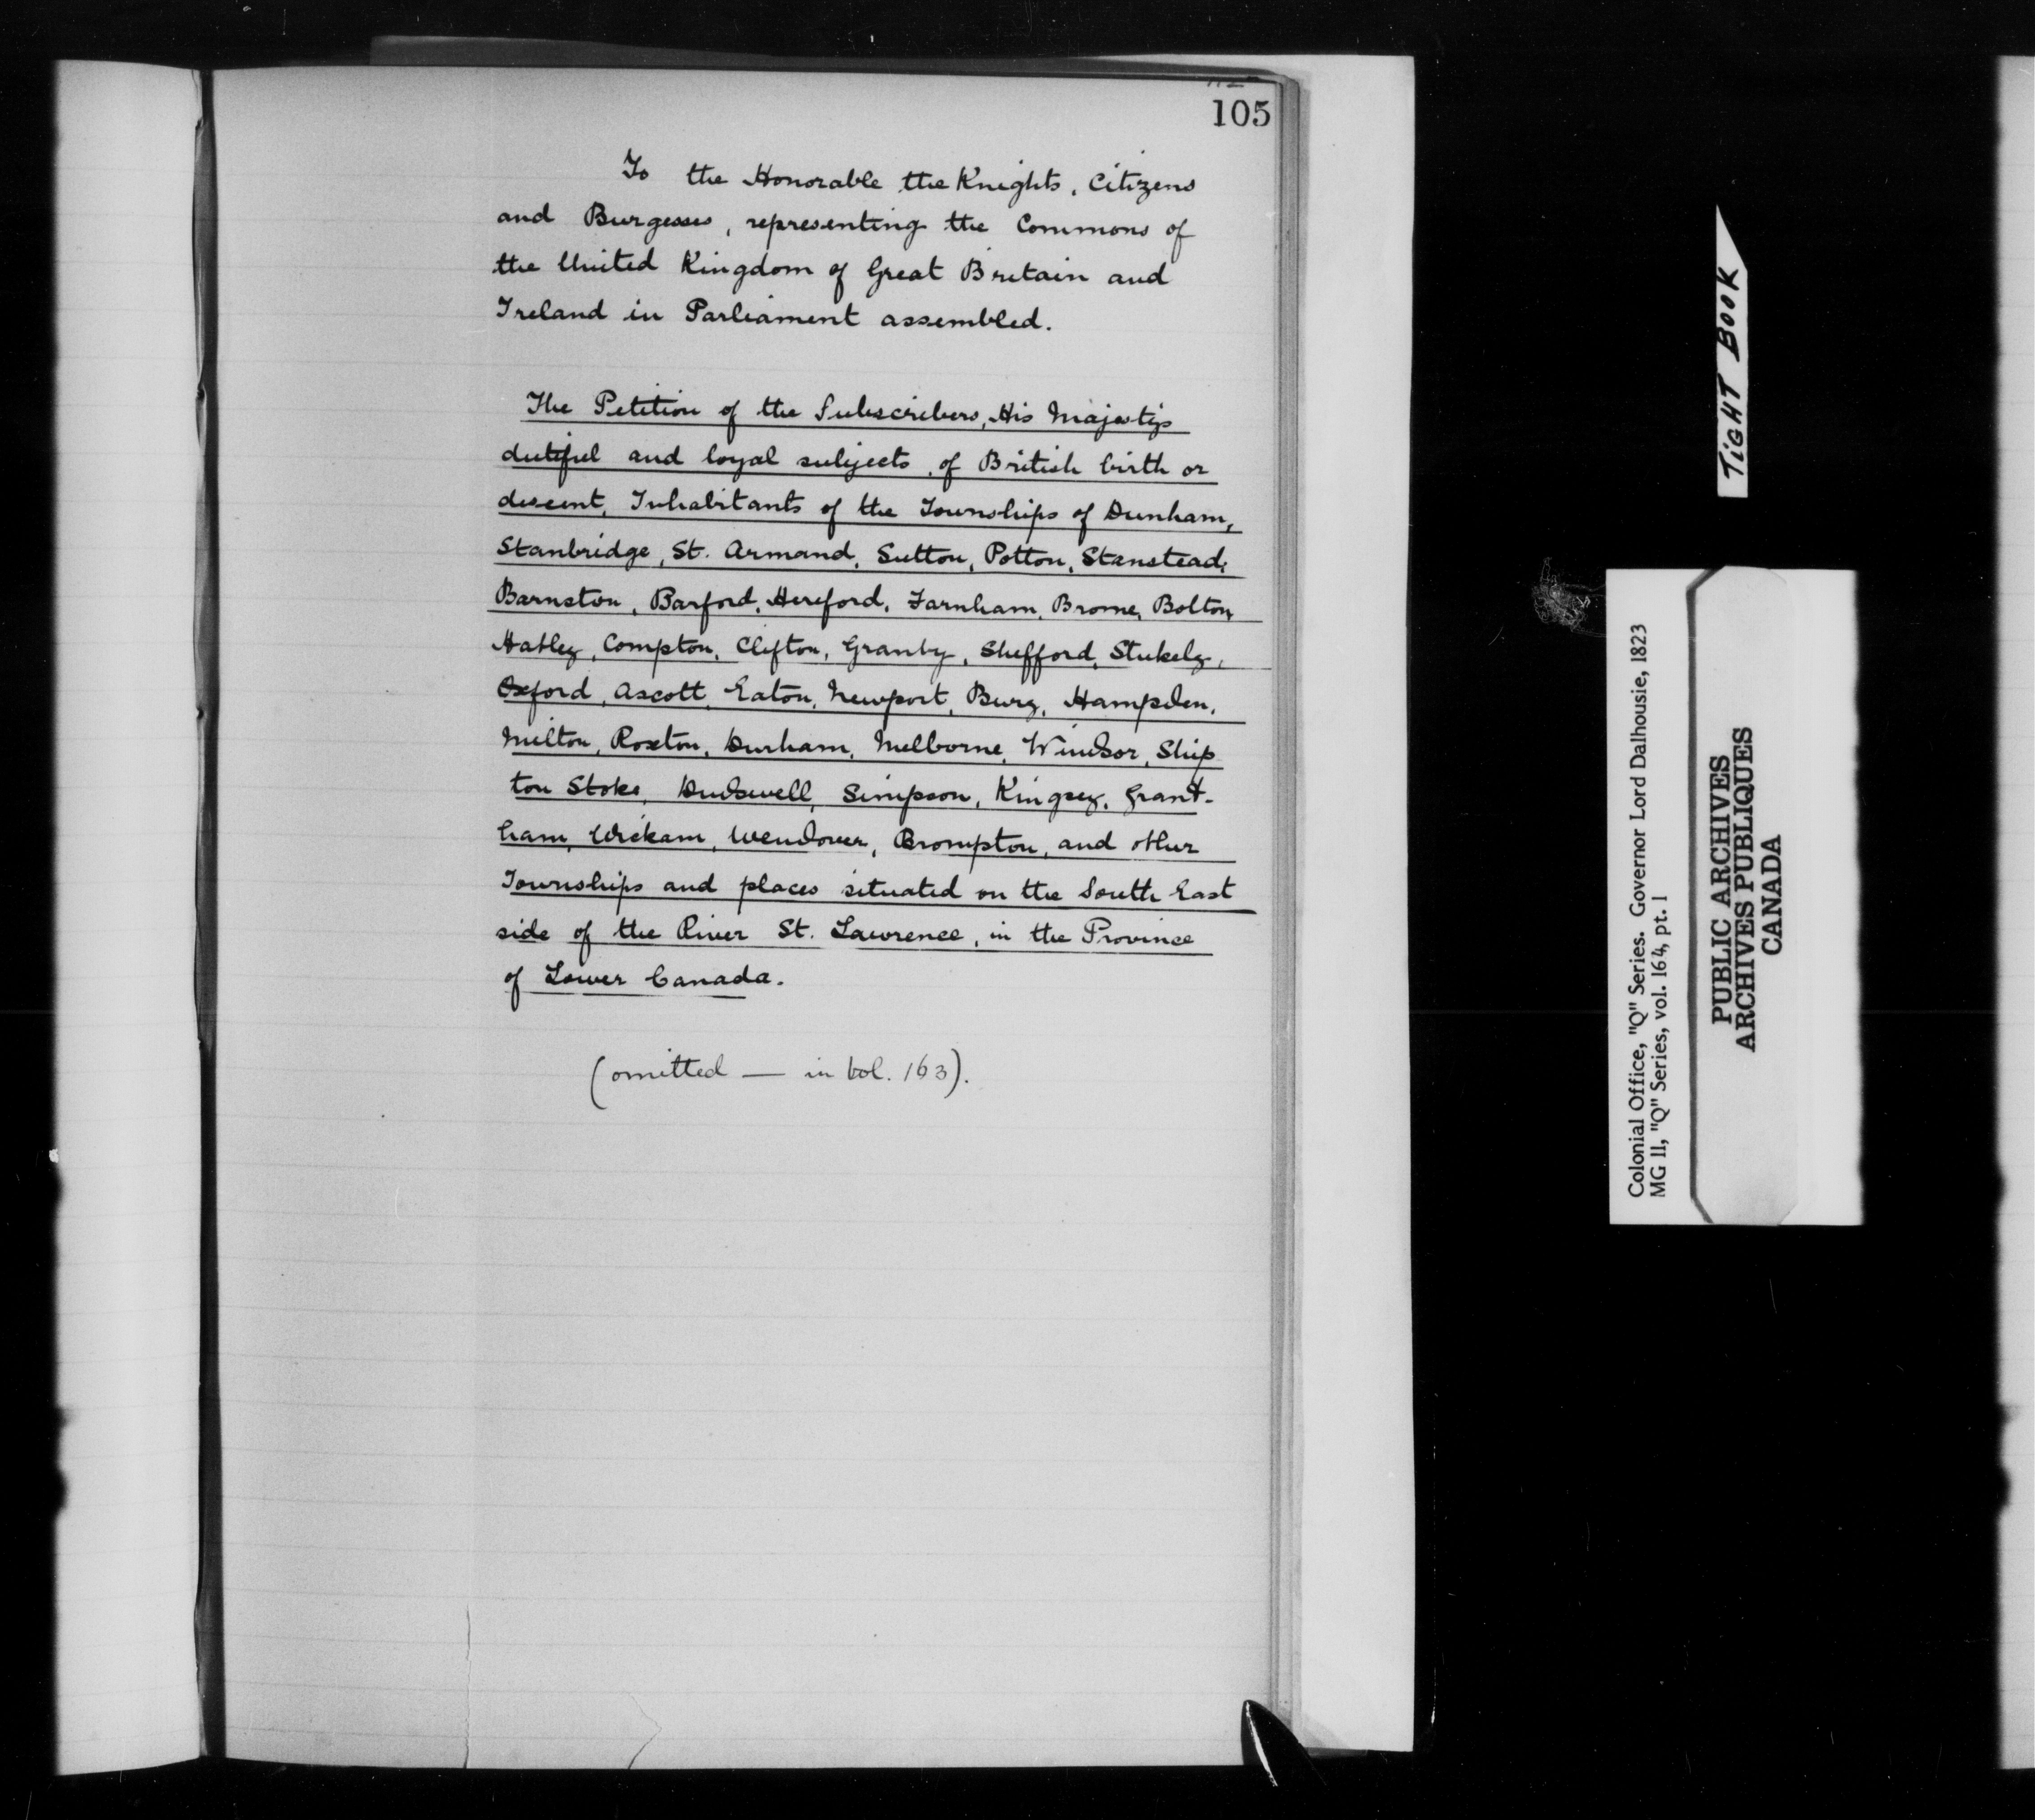 105
To the Honorable the Knights, Citizens
and Burgesses, representing the Commons of
the United Kingdom of Great Britain and
Ireland in Parliament assembled.
The Petition of the Subscribers, His Majestys
dutiful and loyal subjects, of British birth or
descent, Inhabitants of the Townships of Dunham,
Stanbridge, St. Armand, Sutton, Potton, Stanstead,
Barnston, Barford, Hereford, Farnham, Brome, Bolton,
Hatley, Compton, Clifton, Granby, Shefford, Stukely,
Oxford, Ascott, Eaton, Newport, Bury, Hampden,
Milton, Roxton, Durham, Melborne, Windsor, Ship
ton Stoke, Dudswell, Simpson, Kingsey, Grant-
ham, Wickam, Wendover, Brompton, and other
Townships and places situated on the South East
side of the River St. Lawrence, in the Province
of Lower Canada.
(omitted — in Vol. 163).
TIGHT BOOK
Colonial Office, "Q" Series. Governor Lord Dalhousie, 1823
MG 11, "Q" Series, vol. 164, pt. 1
PUBLIC ARCHIVES
ARCHIVES PUBLIQUES
CANADA